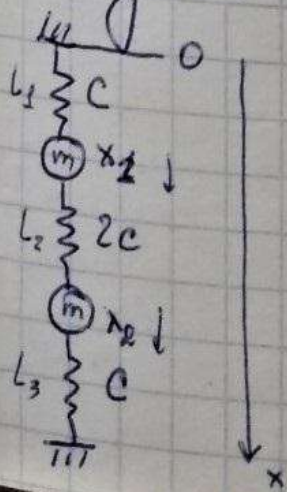 O
L1 C
m x1
L2 2C
m x2
L3 C
x